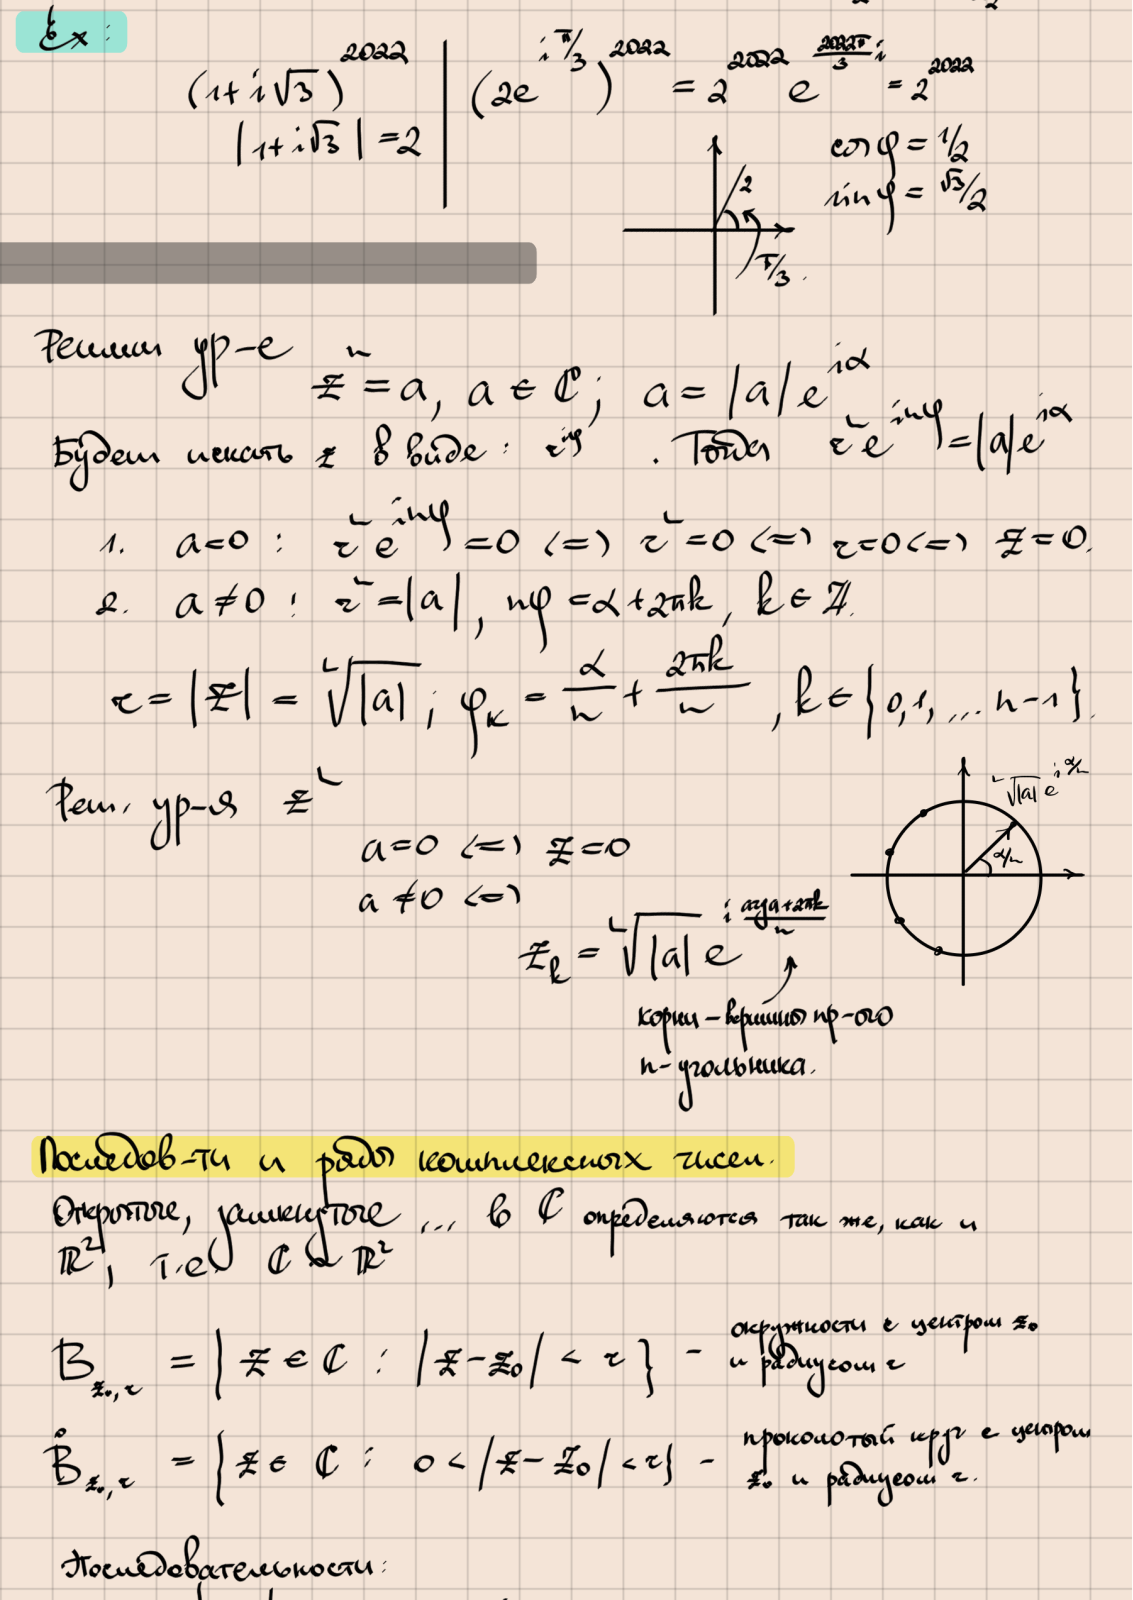 Ex:
(1+i√3)^2022 | (2e^{iπ/3})^2022 = 2^2022 e^{\frac{2022π}{3}i} = 2^2022
|1+i√3| = 2
cosφ = 1/2
sinφ = √3/2
2
π/3.
Решим ур-е
z^n = a, a ∈ ℂ; a = |a|e^{iα}
Будем искать z в виде: r^{iφ}. Тогда r^n e^{inφ} = |a|e^{iα}
1. a=0 : r^n e^{inφ} = 0 <=> r^n = 0 <=> r=0 <=> z=0.
2. a≠0 : r^n = |a|, nφ = α+2πk, k ∈ ℤ.
r = |z| = ⁿ√|a| ; φ_k = α/n + 2πk/n, k ∈ {0,1,... n-1}.
Реш. ур-я z^n
ⁿ√|a| e^{iα/n}
α/n
a=0 <=> z=0
a≠0 <=>
z_k = ⁿ√|a| e^{i\frac{arg a+2πk}{n}}
корни - вершины пр-ого
n-угольника.
Последов-ти и ряды комплексных чисел.
Открытые, замкнутые ... в ℂ определяются так же, как и
ℝ², т.е. ℂ ~ ℝ²
B_{z₀,r} = {z ∈ ℂ : |z-z₀| < r} - окружности с центром z₀
и радиусом r
B̊_{z₀,r} = {z ∈ ℂ : 0 < |z-z₀| < r} - проколотый круг с центром
z₀ и радиусом r.
Последовательности: